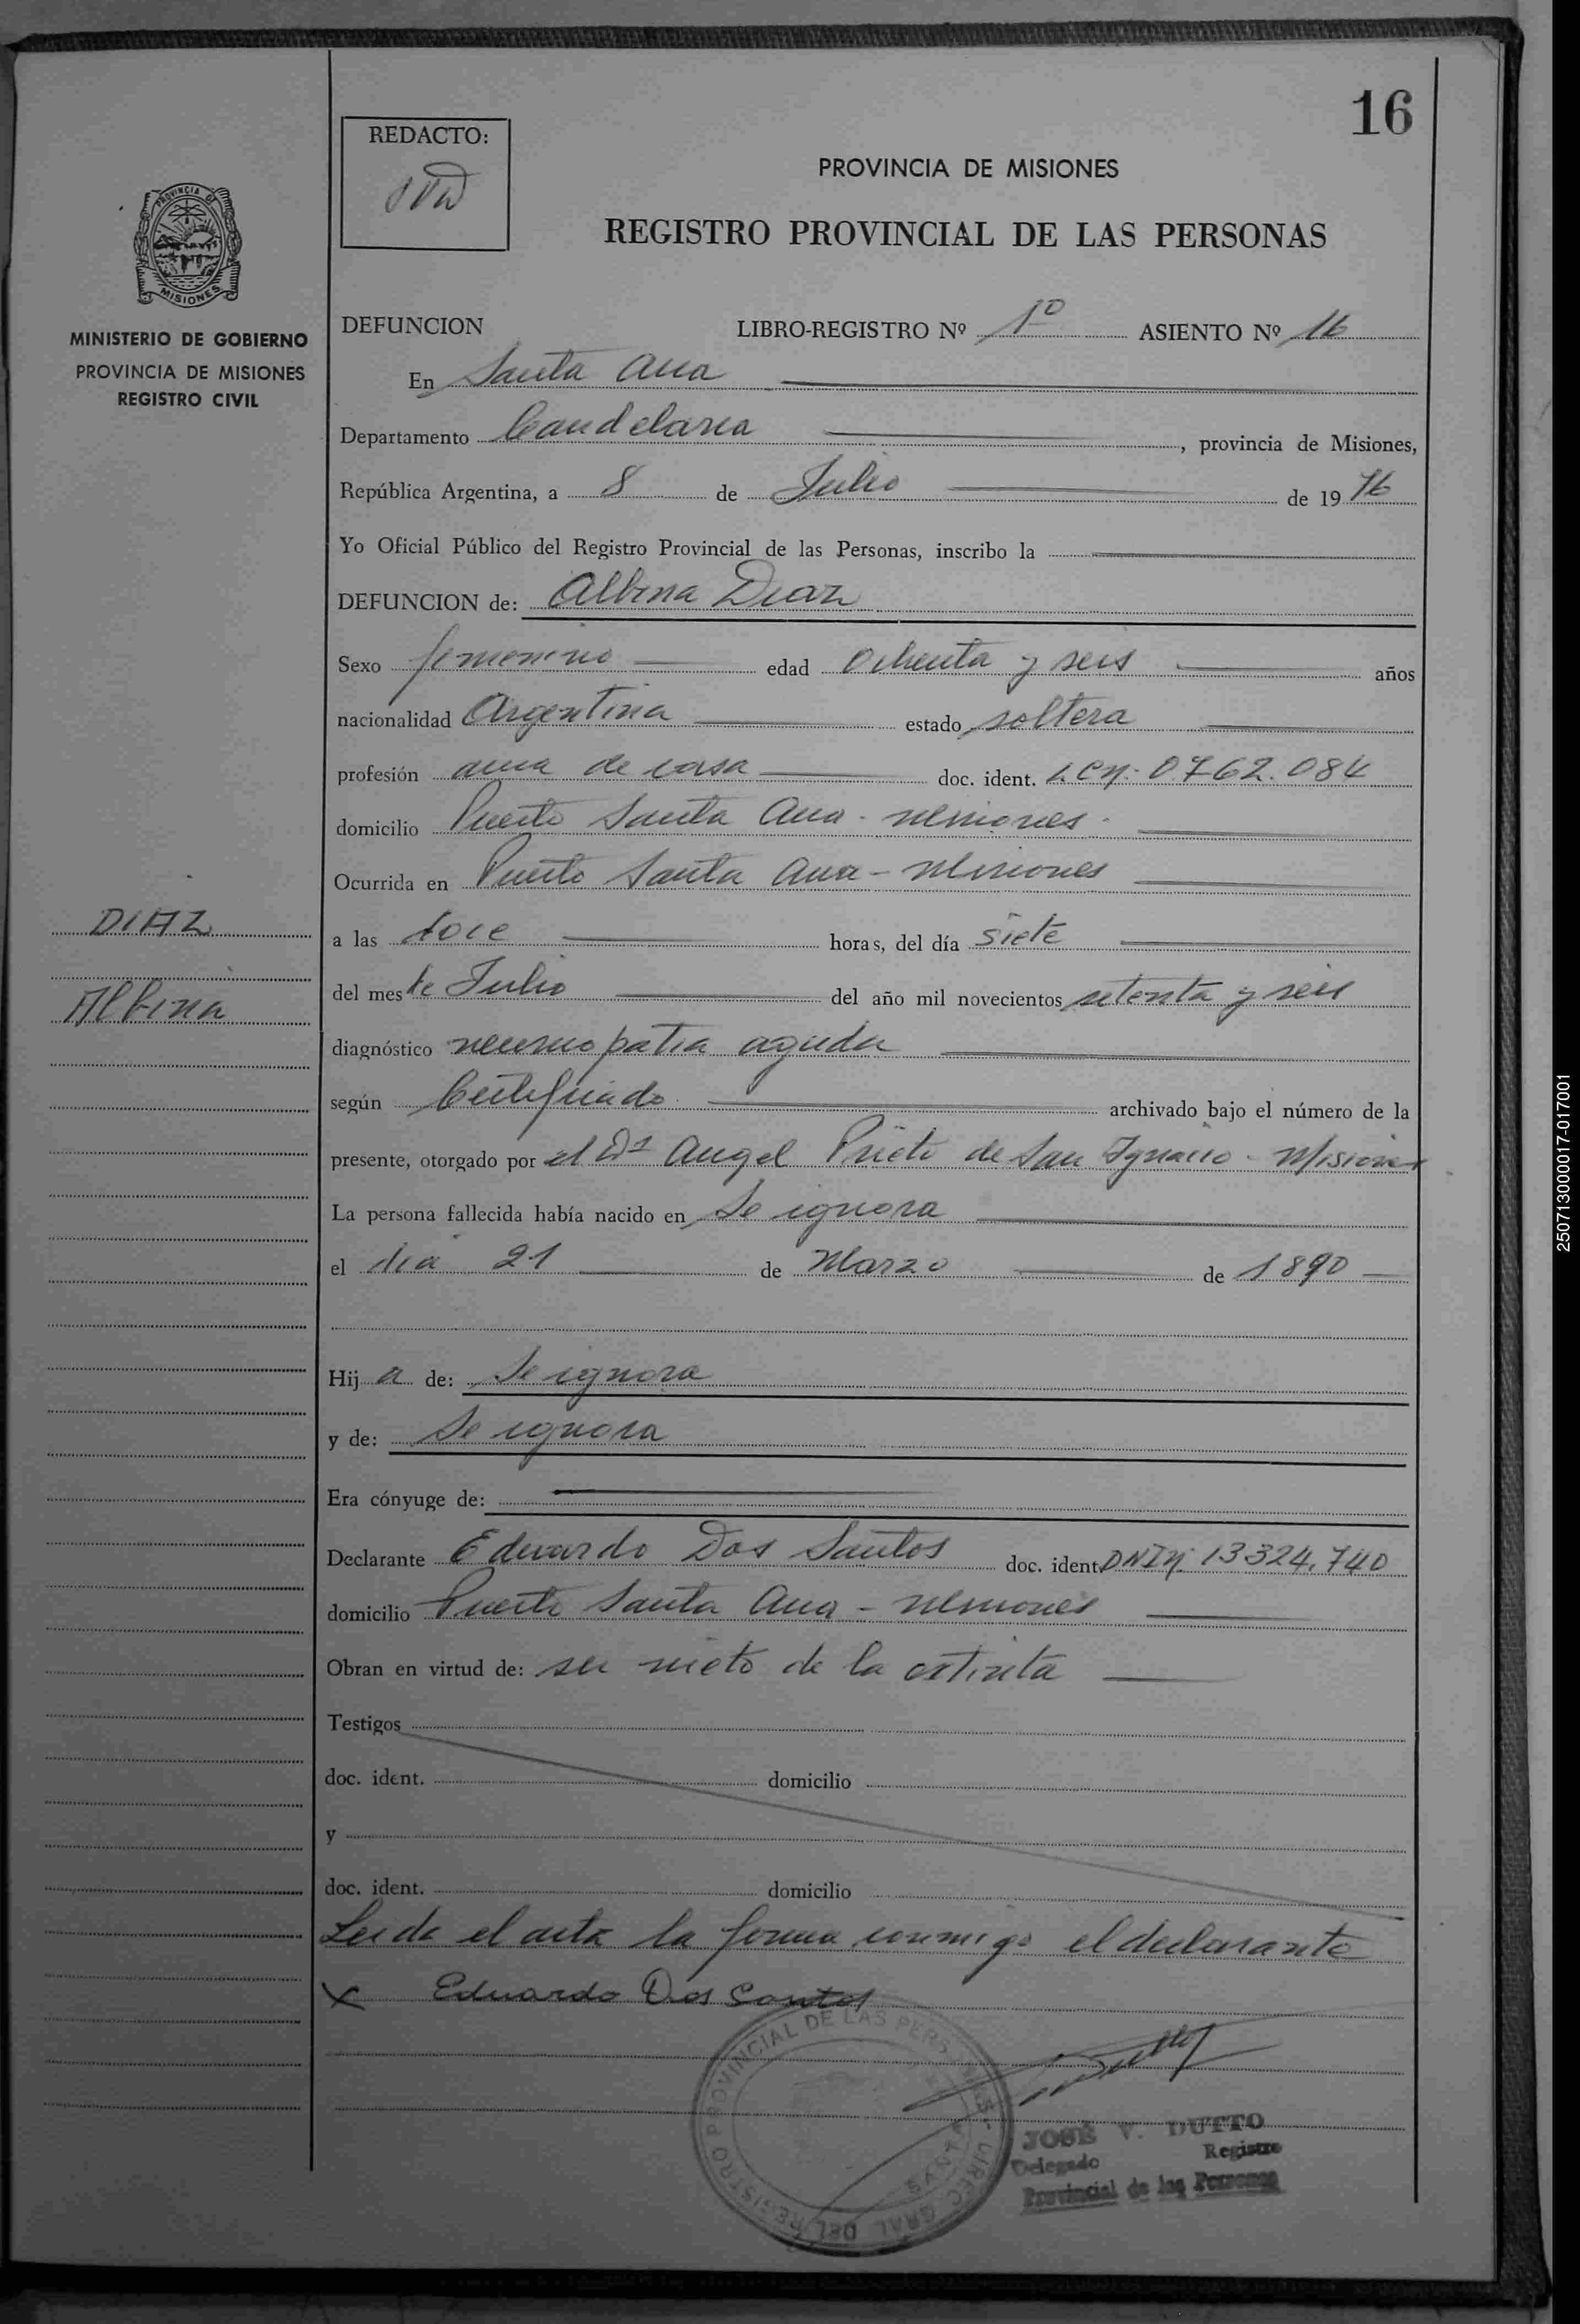 16
REDACTO:
PROVINCIA DE MISIONES
REGISTRO PROVINCIAL DE LAS PERSONAS
PROVINCIA DE
MISIONES
MINISTERIO DE GOBIERNO
PROVINCIA DE MISIONES
REGISTRO CIVIL
DEFUNCION LIBRO-REGISTRO Nº 1º ASIENTO Nº 16
En Santa Ana
Departamento Candelaria, provincia de Misiones,
República Argentina, a 8 de Julio de 1976
Yo Oficial Público del Registro Provincial de las Personas, inscribo la
DEFUNCION de: Albina Diaz
Sexo femenino edad Ochenta y seis años
nacionalidad Argentina estado soltera
profesión ama de casa doc. ident. LCNº 0762.084
domicilio Puerto Santa Ana - Misiones -
Ocurrida en Puerto Santa Ana - Misiones
DIAZ
a las doce horas, del día siete
Albina
del mes de Julio del año mil novecientos setenta y seis
diagnóstico neumopatia aguda
según Certificado archivado bajo el número de la
presente, otorgado por el Dr Angel Prieto de San Ignacio - Misiones
La persona fallecida había nacido en Se ignora
el dia 21 de Marzo de 1890
Hija de: Se ignora
y de: Se ignora
Era cónyuge de:
Declarante Eduardo Dos Santos doc. ident DNINº 13324.740
domicilio Puerto Santa Ana - Misiones
Obran en virtud de: ser nieto de la extinta
Testigos
doc. ident. domicilio
y
doc. ident. domicilio
Leida el acta la firma conmigo el declarante
x Eduardo Dos Santos
PROVINCIAL DE LAS PERS
DIREC GRAL DEL REGISTRO
SANTA
JOSÉ V. DUTTO
Delegado Registro
Provincial de las Personas
250713000017-017001